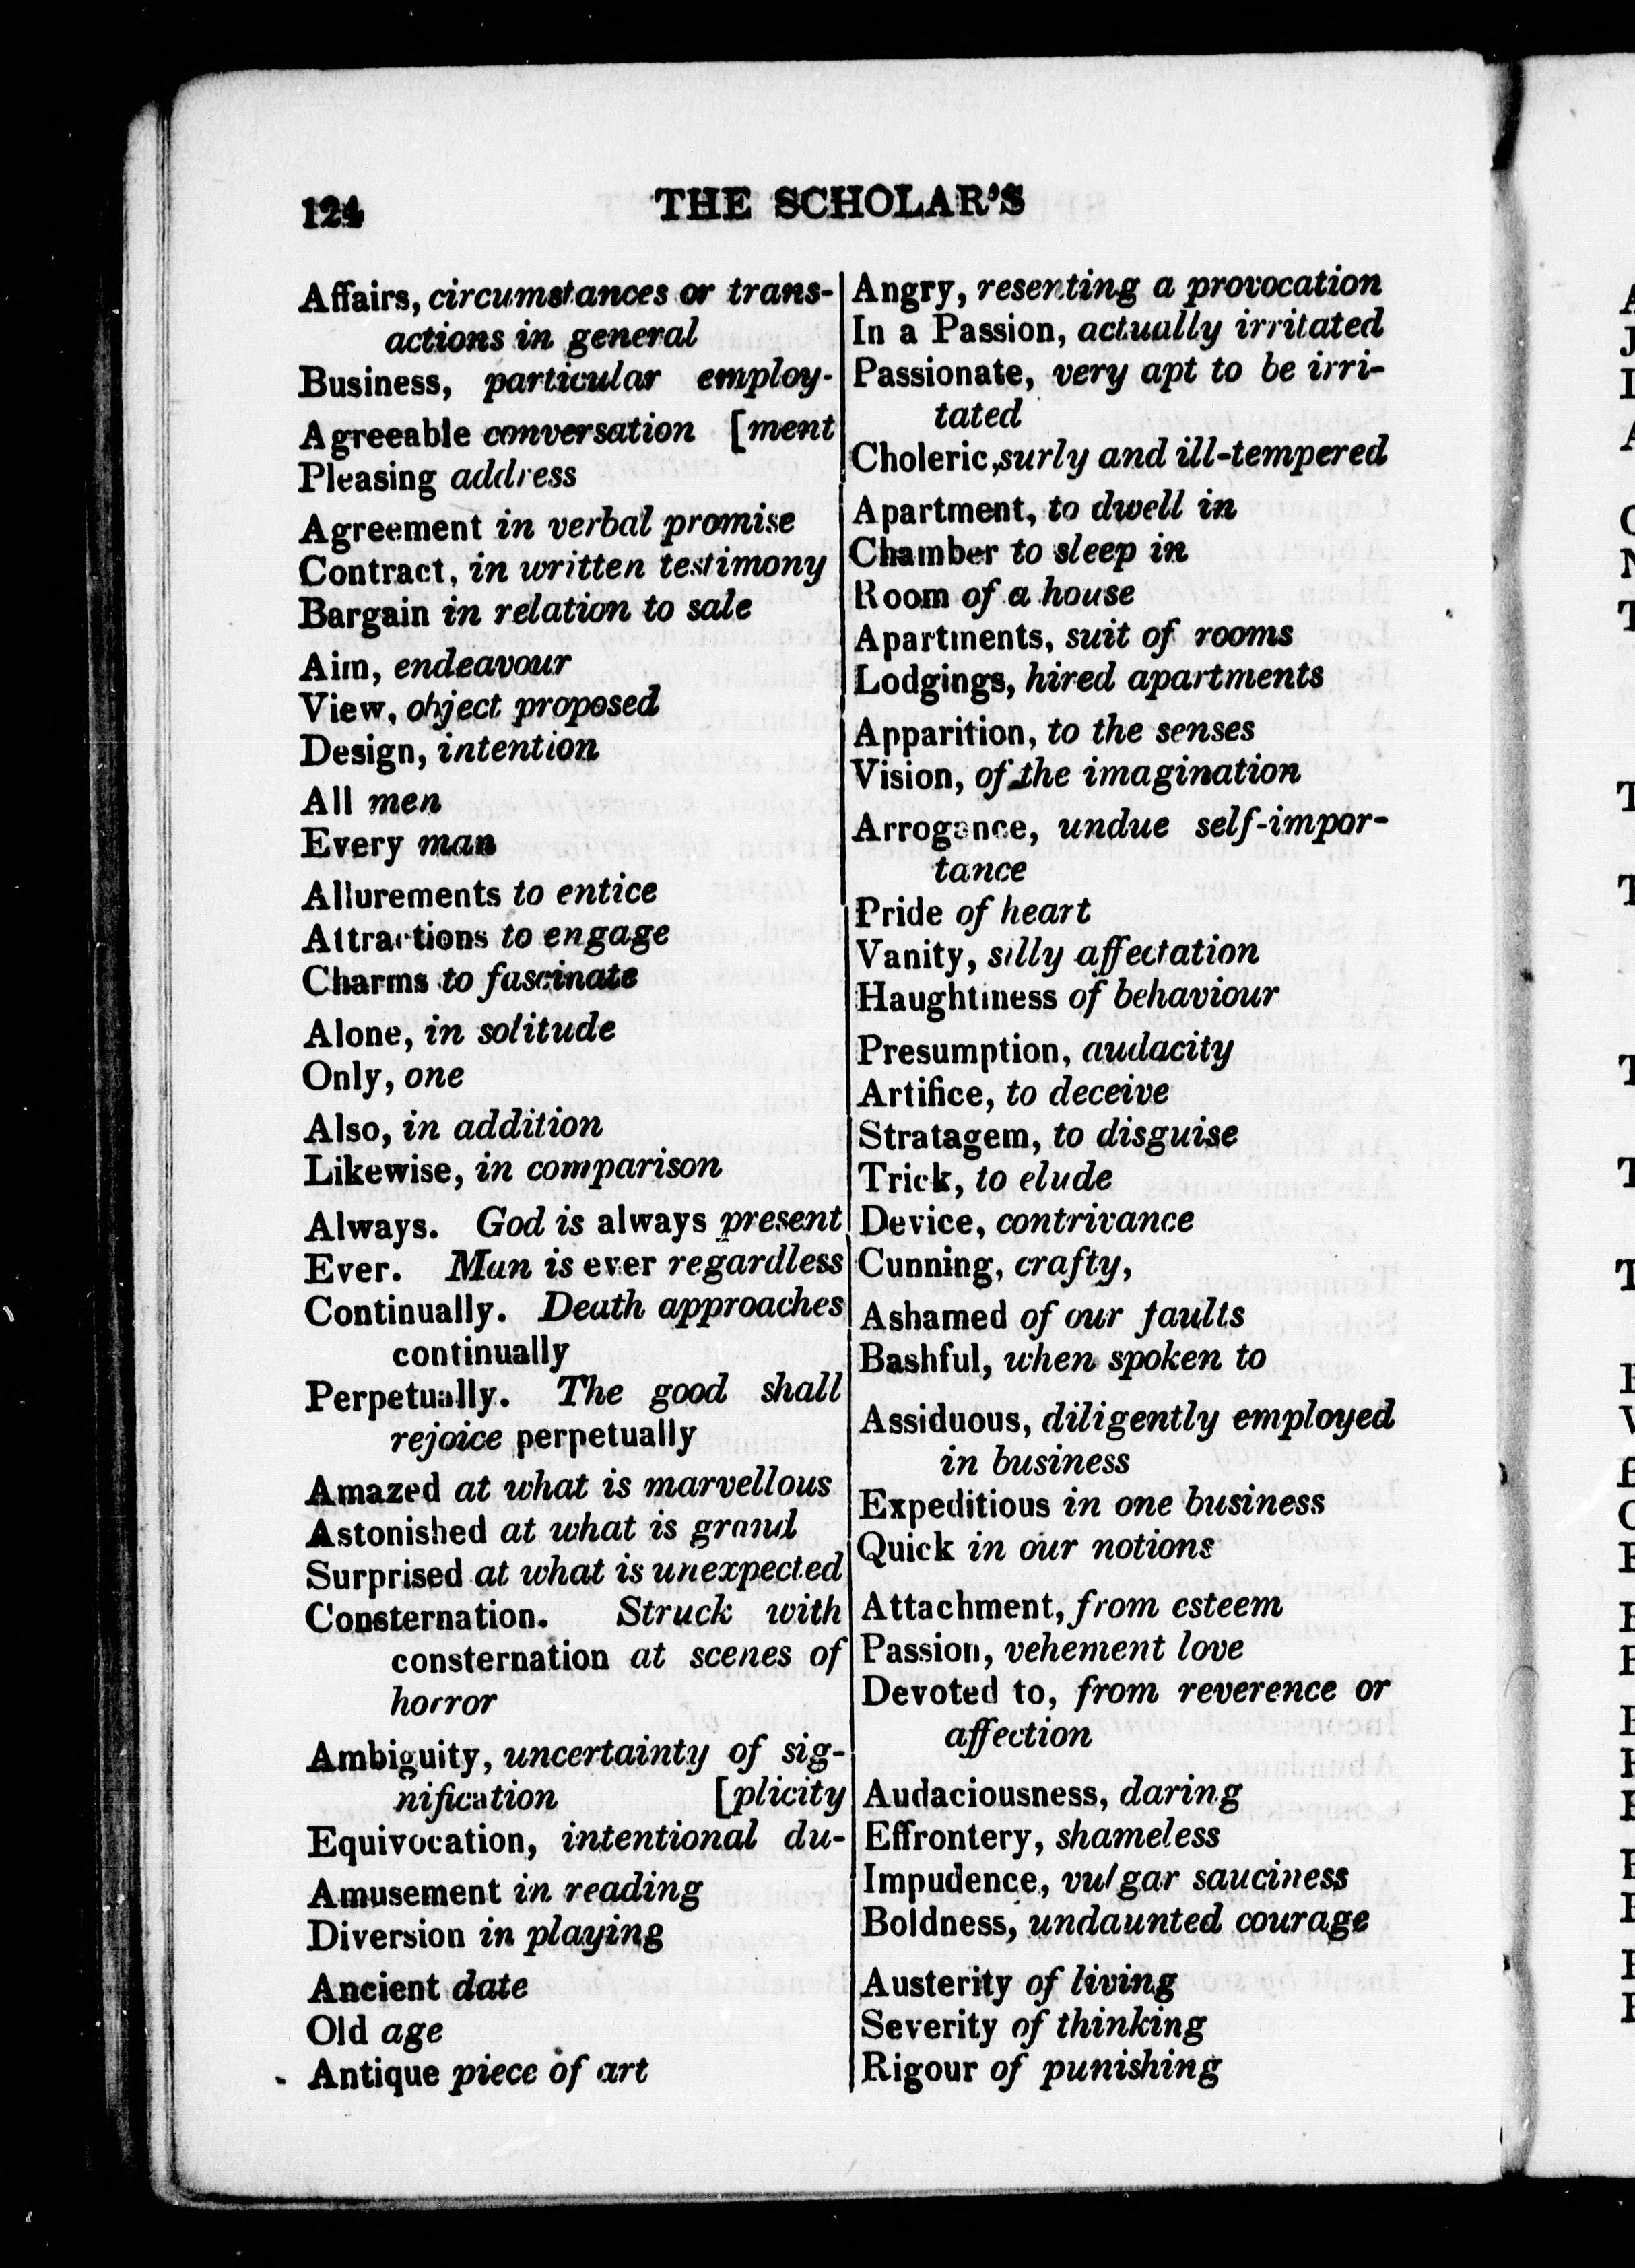 124
THE SCHOLAR'S
Affairs, circumstances or trans-
actions in general
Business, particular employ-
Agreeable conversation [ment
Pleasing address
Agreement in verbal promise
Contract, in written testimony
Bargain in relation to sale
Aim, endeavour
View, object proposed
Design, intention
All men
Every man
Allurements to entice
Attractions to engage
Charms to fascinate
Alone, in solitude
Only, one
Also, in addition
Likewise, in comparison
Always. God is always present
Ever. Man is ever regardless
Continually. Death approaches
continually
Perpetually. The good shall
rejoice perpetually
Amazed at what is marvellous
Astonished at what is grand
Surprised at what is unexpected
Consternation. Struck with
consternation at scenes of
horror
Ambiguity, uncertainty of sig-
nification [plicity
Equivocation, intentional du-
Amusement in reading
Diversion in playing
Ancient date
Old age
Antique piece of art
Angry, resenting a provocation
In a Passion, actually irritated
Passionate, very apt to be irri-
tated
Choleric, surly and ill-tempered
Apartment, to dwell in
Chamber to sleep in
Room of a house
Apartments, suit of rooms
Lodgings, hired apartments
Apparition, to the senses
Vision, of the imagination
Arrogance, undue self-impor-
tance
Pride of heart
Vanity, silly affectation
Haughtiness of behaviour
Presumption, audacity
Artifice, to deceive
Stratagem, to disguise
Trick, to elude
Device, contrivance
Cunning, crafty,
Ashamed of our faults
Bashful, when spoken to
Assiduous, diligently employed
in business
Expeditious in one business
Quick in our notions
Attachment, from esteem
Passion, vehement love
Devoted to, from reverence or
affection
Audaciousness, daring
Effrontery, shameless
Impudence, vulgar sauciness
Boldness, undaunted courage
Austerity of living
Severity of thinking
Rigour of punishing